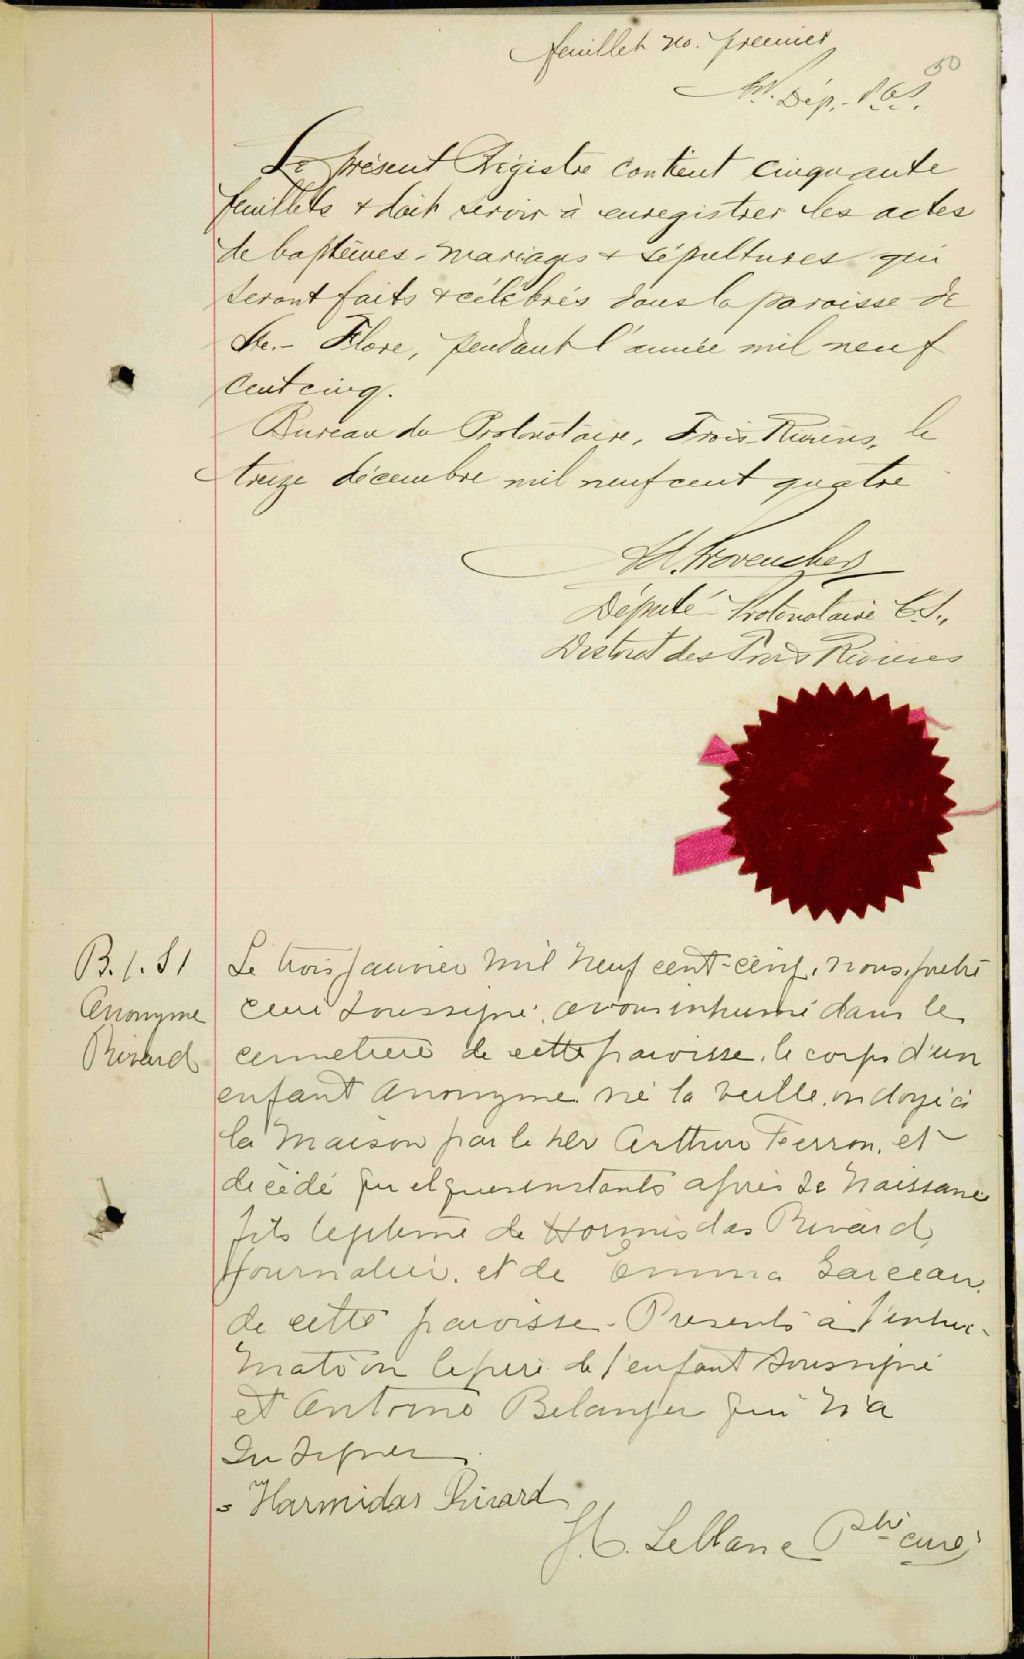 feuillet no. premier
50
Dép. P.C.S.
Le présent Régistre contient cinquante
feuillets & doit servir à enregistrer les actes
de baptêmes - mariages & sépultures qui
seront faits & célébrés dans la paroisse de
Ste.- Flore, pendant l'année mil neuf
cent cinq.
Bureau du Protonotaire, Trois Rivières, le
treize décembre mil neuf cent quatre
Provencher
Député Protonotaire C.S.,
District des Trois Rivières
B. 1. S 1
Anonyme
Rivard
Le trois janvier mil neuf cent-cinq, nous, prêtre
curé soussigné, avons inhumé dans le
cemetiere de cette paroisse, le corps d'un
enfant anonyme né la veille, ondoyé à
la maison par le Arthur Ferron, et
décédé quelques instants après sa naissance
fils legitime de Hormisdas Rivard,
journalier, et de Emma Garceau,
de cette paroisse. Presents à l'inhu-
mation le père de l'enfant soussigné
et Antoine Belanger qui n'a
su signer.
Harmidas Rivard
J. C. Leblanc Ptre curé